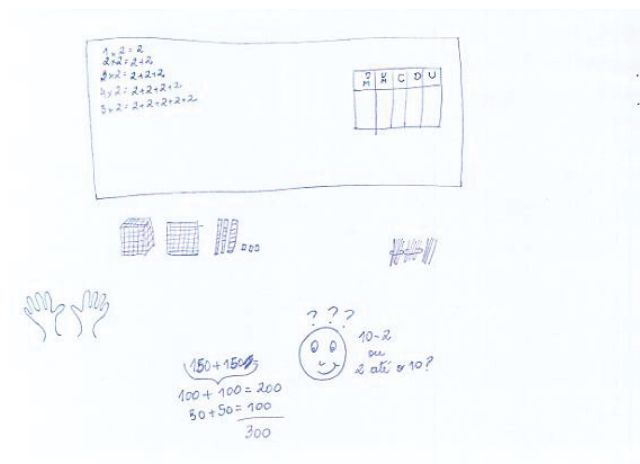 1 x 2 = 2
2 x 2 = 2+2
3 x 2 = 2+2+2
4 x 2 = 2+2+2+2
5 x 2 = 2+2+2+2+2
D M U M C D U
? ? ?
10 - 2
ou
2 até o 10?
150 + 150 =
100 + 100 = 200
50 + 50 = 100
300